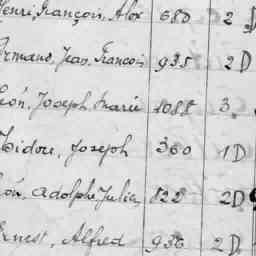 Henri, François, Alex 680 2 D
Armand, Jean, Francois 935 2 D
Léon, Joseph Marie 1088 3.
Isidore, Joseph 360 1 D
Léon, Adolphe Julien 822 2 D
Ernest, Alfred 936 2 D